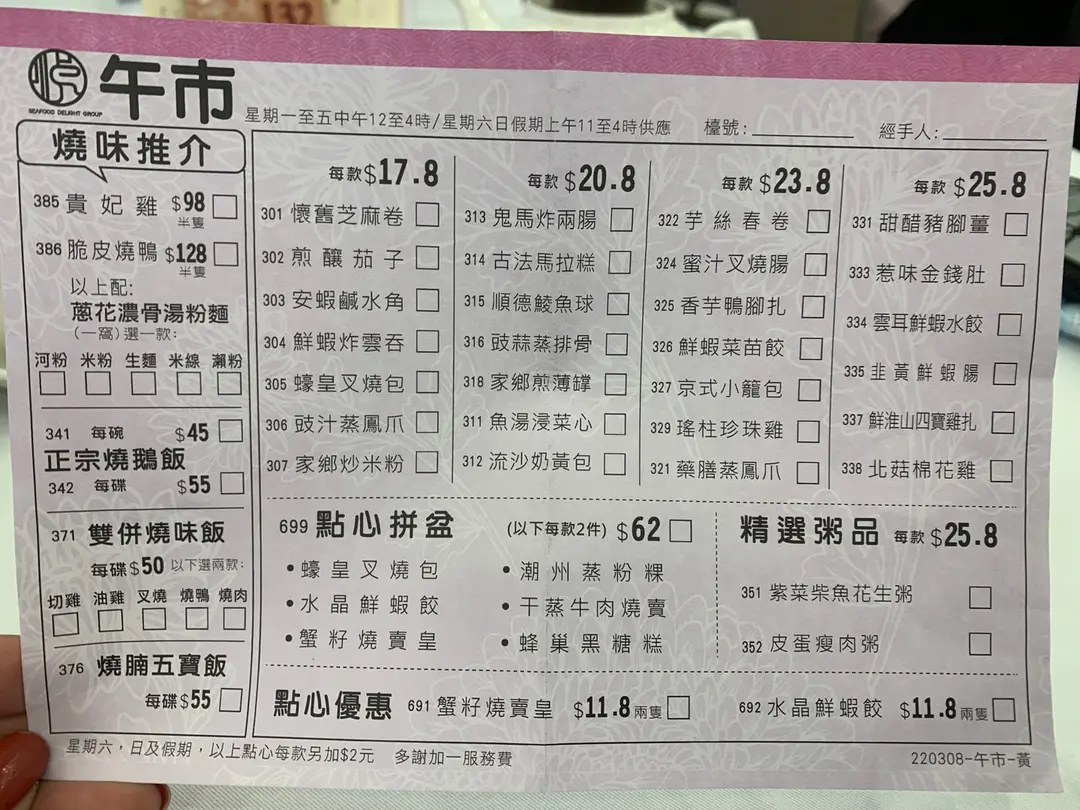 132
悅
SEAFOOD DELIGHT GROUP
午市
星期一至五中午12至4時/星期六日假期上午11至4時供應
檯號:
經手人:
燒味推介
385 貴妃雞 $98
半隻
386 脆皮燒鴨 $128
半隻
以上配:
蔥花濃骨湯粉麵
(一窩)選一款:
河粉 米粉 生麵 米線 瀨粉
341 每碗 $45
正宗燒鵝飯
342 每碟 $55
371 雙併燒味飯
每碟$50 以下選兩款:
切雞 油雞 叉燒 燒鴨 燒肉
376 燒腩五寶飯
每碟$55
每款$17.8
301 懷舊芝麻卷
302 煎釀茄子
303 安蝦鹹水角
304 鮮蝦炸雲吞
305 蠔皇叉燒包
306 豉汁蒸鳳爪
307 家鄉炒米粉
每款$20.8
313 鬼馬炸兩腸
314 古法馬拉糕
315 順德鯪魚球
316 豉蒜蒸排骨
318 家鄉煎薄罉
311 魚湯浸菜心
312 流沙奶黃包
每款$23.8
322 芋絲春卷
324 蜜汁叉燒腸
325 香芋鴨腳扎
326 鮮蝦菜苗餃
327 京式小籠包
329 瑤柱珍珠雞
321 藥膳蒸鳳爪
每款$25.8
331 甜醋豬腳薑
333 惹味金錢肚
334 雲耳鮮蝦水餃
335 韭黃鮮蝦腸
337 鮮淮山四寶雞扎
338 北菇棉花雞
699 點心拼盆 (以下每款2件) $62
•蠔皇叉燒包 •潮州蒸粉粿
•水晶鮮蝦餃 •干蒸牛肉燒賣
•蟹籽燒賣皇 •蜂巢黑糖糕
精選粥品 每款$25.8
351 紫菜柴魚花生粥
352 皮蛋瘦肉粥
點心優惠 691 蟹籽燒賣皇 $11.8兩隻 692 水晶鮮蝦餃 $11.8兩隻
星期六，日及假期，以上點心每款另加$2元 多謝加一服務費
220308-午市-黃